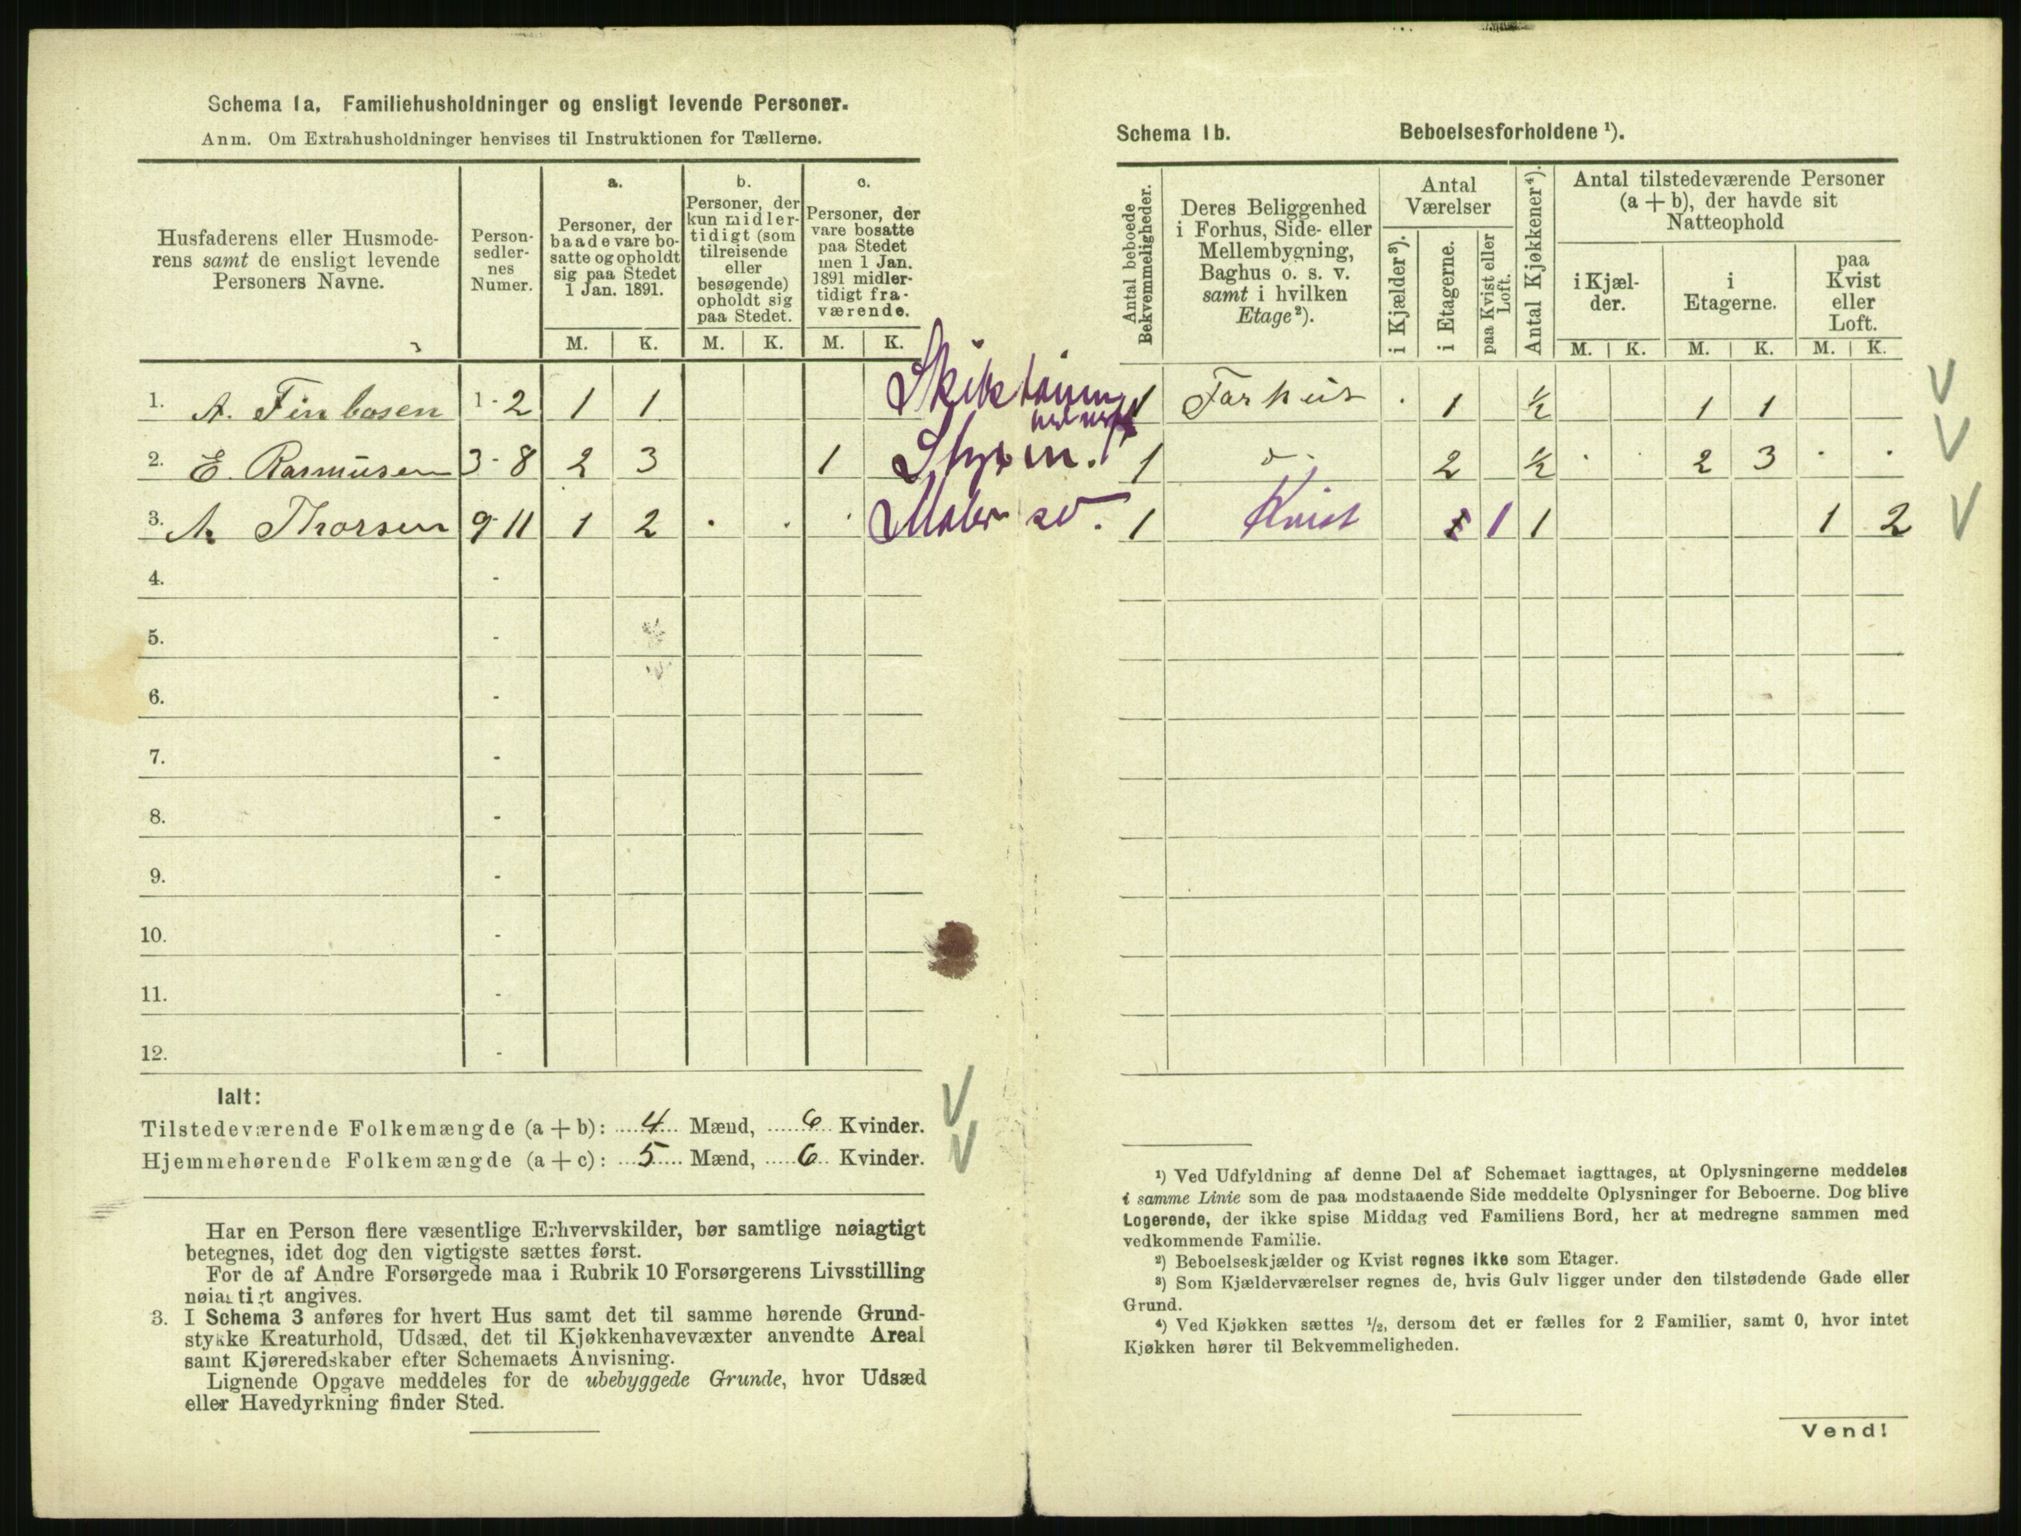 Schema 1a. Familiehusholdninger og ensligt levende Personer.
Anm. Om Extrahusholdninger henvises til Instruktionen for Tællerne.
Husfaderens eller Husmode-
rens samt de ensligt levende
Personers Navne.
Person-
sedler-
nes
Numer.
a.
Personer, der
baade vare bo-
satte og opholdt
sig paa Stedet
1 Jan. 1891.
b.
Personer, der
kun midler-
tidigt (som
tilreisende
eller
besøgende)
opholdt sig
paa Stedet.
c.
Personer, der
vare bosatte
paa Stedet
men 1 Jan.
1891 midler-
tidigt fra-
værende.
M. K. M. K. M. K.
1. A. Finbosen 1-2 1 1
2. E. Rasmusen 3-8 2 3 1
3. Thorsen 9-11 1 2 . . . Maler sv.
4. -
5. -
6. -
7. -
8. -
9. -
10. -
11. -
12. -
Ialt:
Tilstedeværende Folkemængde (a + b): 4 Mænd, 6 Kvinder.
Hjemmehørende Folkemængde (a + c): 5 Mænd, 6 Kvinder.
Har en Person flere væsentlige Erhvervskilder, bør samtlige nøiagtigt
betegnes, idet dog den vigtigste sættes først.
For de af Andre Forsørgede maa i Rubrik 10 Forsørgerens Livsstilling
nøiagtigt angives.
3. I Schema 3 anføres for hvert Hus samt det til samme hørende Grund-
stykke Kreaturhold, Udsæd, det til Kjøkkenhavevæxter anvendte Areal
samt Kjøreredskaber efter Schemaets Anvisning.
Lignende Opgave meddeles for de ubebyggede Grunde, hvor Udsæd
eller Havedyrkning finder Sted.
Schema 1b. Beboelsesforholdene ¹).
Antal beboede
Bekvemmeligheder.
Deres Beliggenhed
i Forhus, Side- eller
Mellembygning,
Baghus o. s. v.
samt i hvilken
Etage²).
Antal
Værelser
i Kjælder³).
i Etagerne.
paa Kvist eller
Loft.
Antal Kjøkkener⁴).
Antal tilstedeværende Personer
(a + b), der havde sit
Natteophold
i Kjæl-
der.
i
Etagerne.
paa
Kvist
eller
Loft.
M. K. M. K. M. K.
1 Forhus . 1 ½ 1 1
1 d. 2 ½ . . 2 3 . .
1 Kvist 1 1 1 1 2
¹) Ved Udfyldning af denne Del af Schemaet iagttages, at Oplysningerne meddeles
i samme Linie som de paa modstaaende Side meddelte Oplysninger for Beboerne. Dog blive
Logerende, der ikke spise Middag ved Familiens Bord, her at medregne sammen med
vedkommende Familie.
²) Beboelseskjælder og Kvist regnes ikke som Etager.
³) Som Kjælderværelser regnes de, hvis Gulv ligger under den tilstødende Gade eller
Grund.
⁴) Ved Kjøkken sættes ½, dersom det er fælles for 2 Familier, samt 0, hvor intet
Kjøkken hører til Bekvemmeligheden.
Vend!